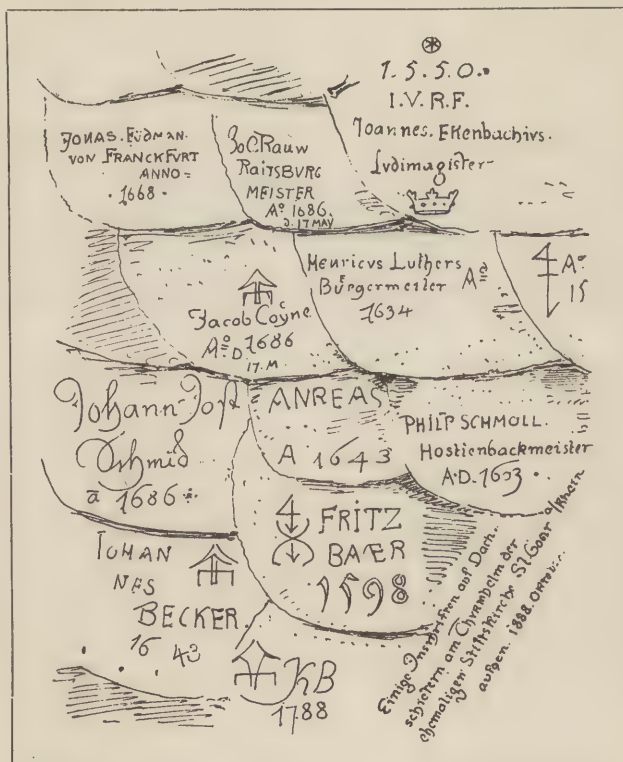 1.5.5.0.
I.V.R.F.
Joannes. Ekenbachivs.
Lvdimagister
JONAS. FÜDMAN.
VON FRANCKFURT
ANNO =
· 1668 ·
Joc. Rauw
RAITSBURG
MEISTER
Ao 1686.
d. 17 MAY
Henricvs Luthers
Burgermeister Ao
1634
Ao
15
Jacob Coÿne
Ao D 1686
17. M
Johann-Jost
Schmid
a 1686
ANREAS
A 1643
PHILP SCHMOLL.
Hostienbackmeister
A.D. 1603 ·
4
FRITZ
BAER
1598
IOHAN
NES
BECKER.
16 43
KB
1788
Einige Inschriften auf Dach-
schiefern am Thvrmhelm der
ehemaligen Stiftskirche St Goar a/Rhein
außen. 1888. Oktober.